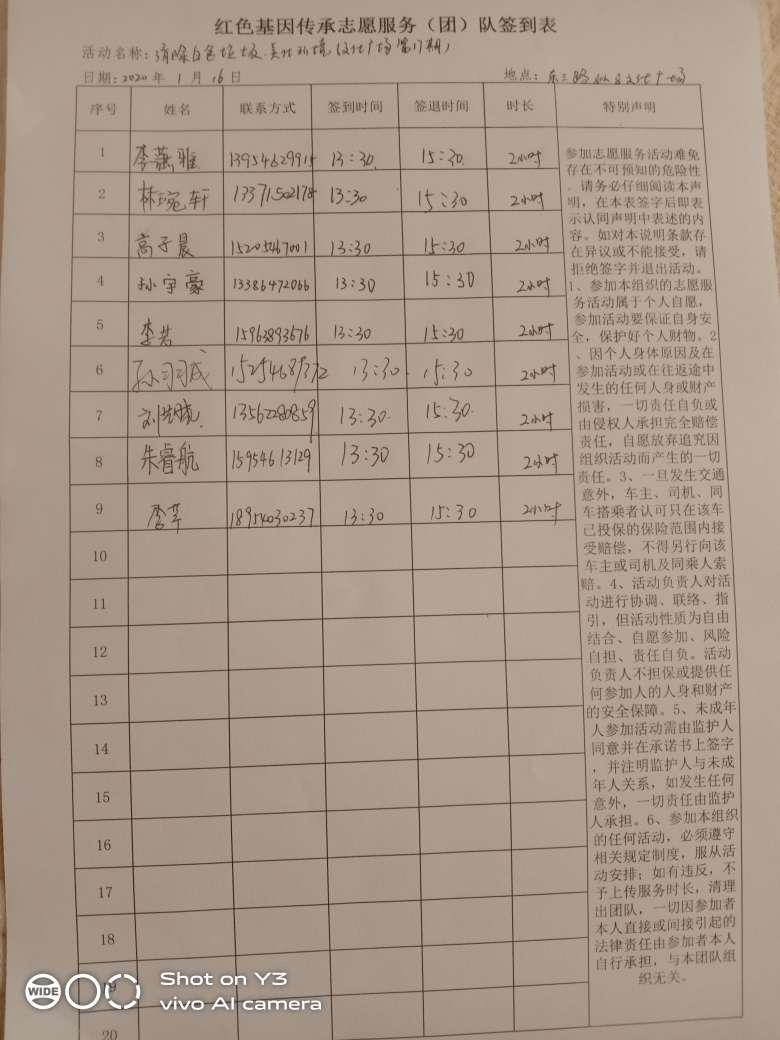 红色基因传承志愿服务（团）队签到表
活动名称：清除白色垃圾.美化环境(文化广场第17期)
日期：2020年 1 月 16 日 地点：东三路 文化广场
序号 姓名 联系方式 签到时间 签退时间 时长 特别声明
1 李萧雅 13954629915 13:30. 15:30. 2小时
2 林琬轩 13371502178 13:30 15:30 2小时
3 高子晨 15205467001 13:30 15:30 2小时
4 孙宇豪 13386472066 13:30 15:30 2小时
5 李若 15963893676 13:30 15:30 2小时
6 孙 成 15254689372 13:30. 15:30 2小时
7 刘 13562280859 13:30. 15:30. 2小时
8 朱睿航 15954613129 13:30 15:30 2小时
9 李 18954030237 13:30 15:30 2小时
10
11
12
13
14
15
16
17
18
19
20
参加志愿服务活动难免
存在不可预知的危险性
，请务必仔细阅读本声
明，在本表签字后即表
示认同声明中表述的内
容。如对本说明条款存
在异议或不能接受，请
拒绝签字并退出活动。
1、参加本组织的志愿服
务活动属于个人自愿，
参加活动要保证自身安
全，保护好个人财物。2
、因个人身体原因及在
参加活动或在往返途中
发生的任何人身或财产
损害，一切责任自负或
由侵权人承担完全赔偿
责任，自愿放弃追究因
组织活动而产生的一切
责任。3、一旦发生交通
意外，车主、司机、同
车搭乘者认可只在该车
已投保的保险范围内接
受赔偿，不得另行向该
车主或司机及同乘人索
赔。4、活动负责人对活
动进行协调、联络、指
引，但活动性质为自由
结合、自愿参加、风险
自担、责任自负。活动
负责人不担保或提供任
何参加人的人身和财产
的安全保障。5、未成年
人参加活动需由监护人
同意并在承诺书上签字
，并注明监护人与未成
年人关系，如发生任何
意外，一切责任由监护
人承担。6、参加本组织
的任何活动，必须遵守
相关规定制度，服从活
动安排；如有违反，不
予上传服务时长，清理
出团队，一切因参加者
本人直接或间接引起的
法律责任由参加者本人
自行承担，与本团队组
织无关。
WIDE
Shot on Y3
vivo AI camera